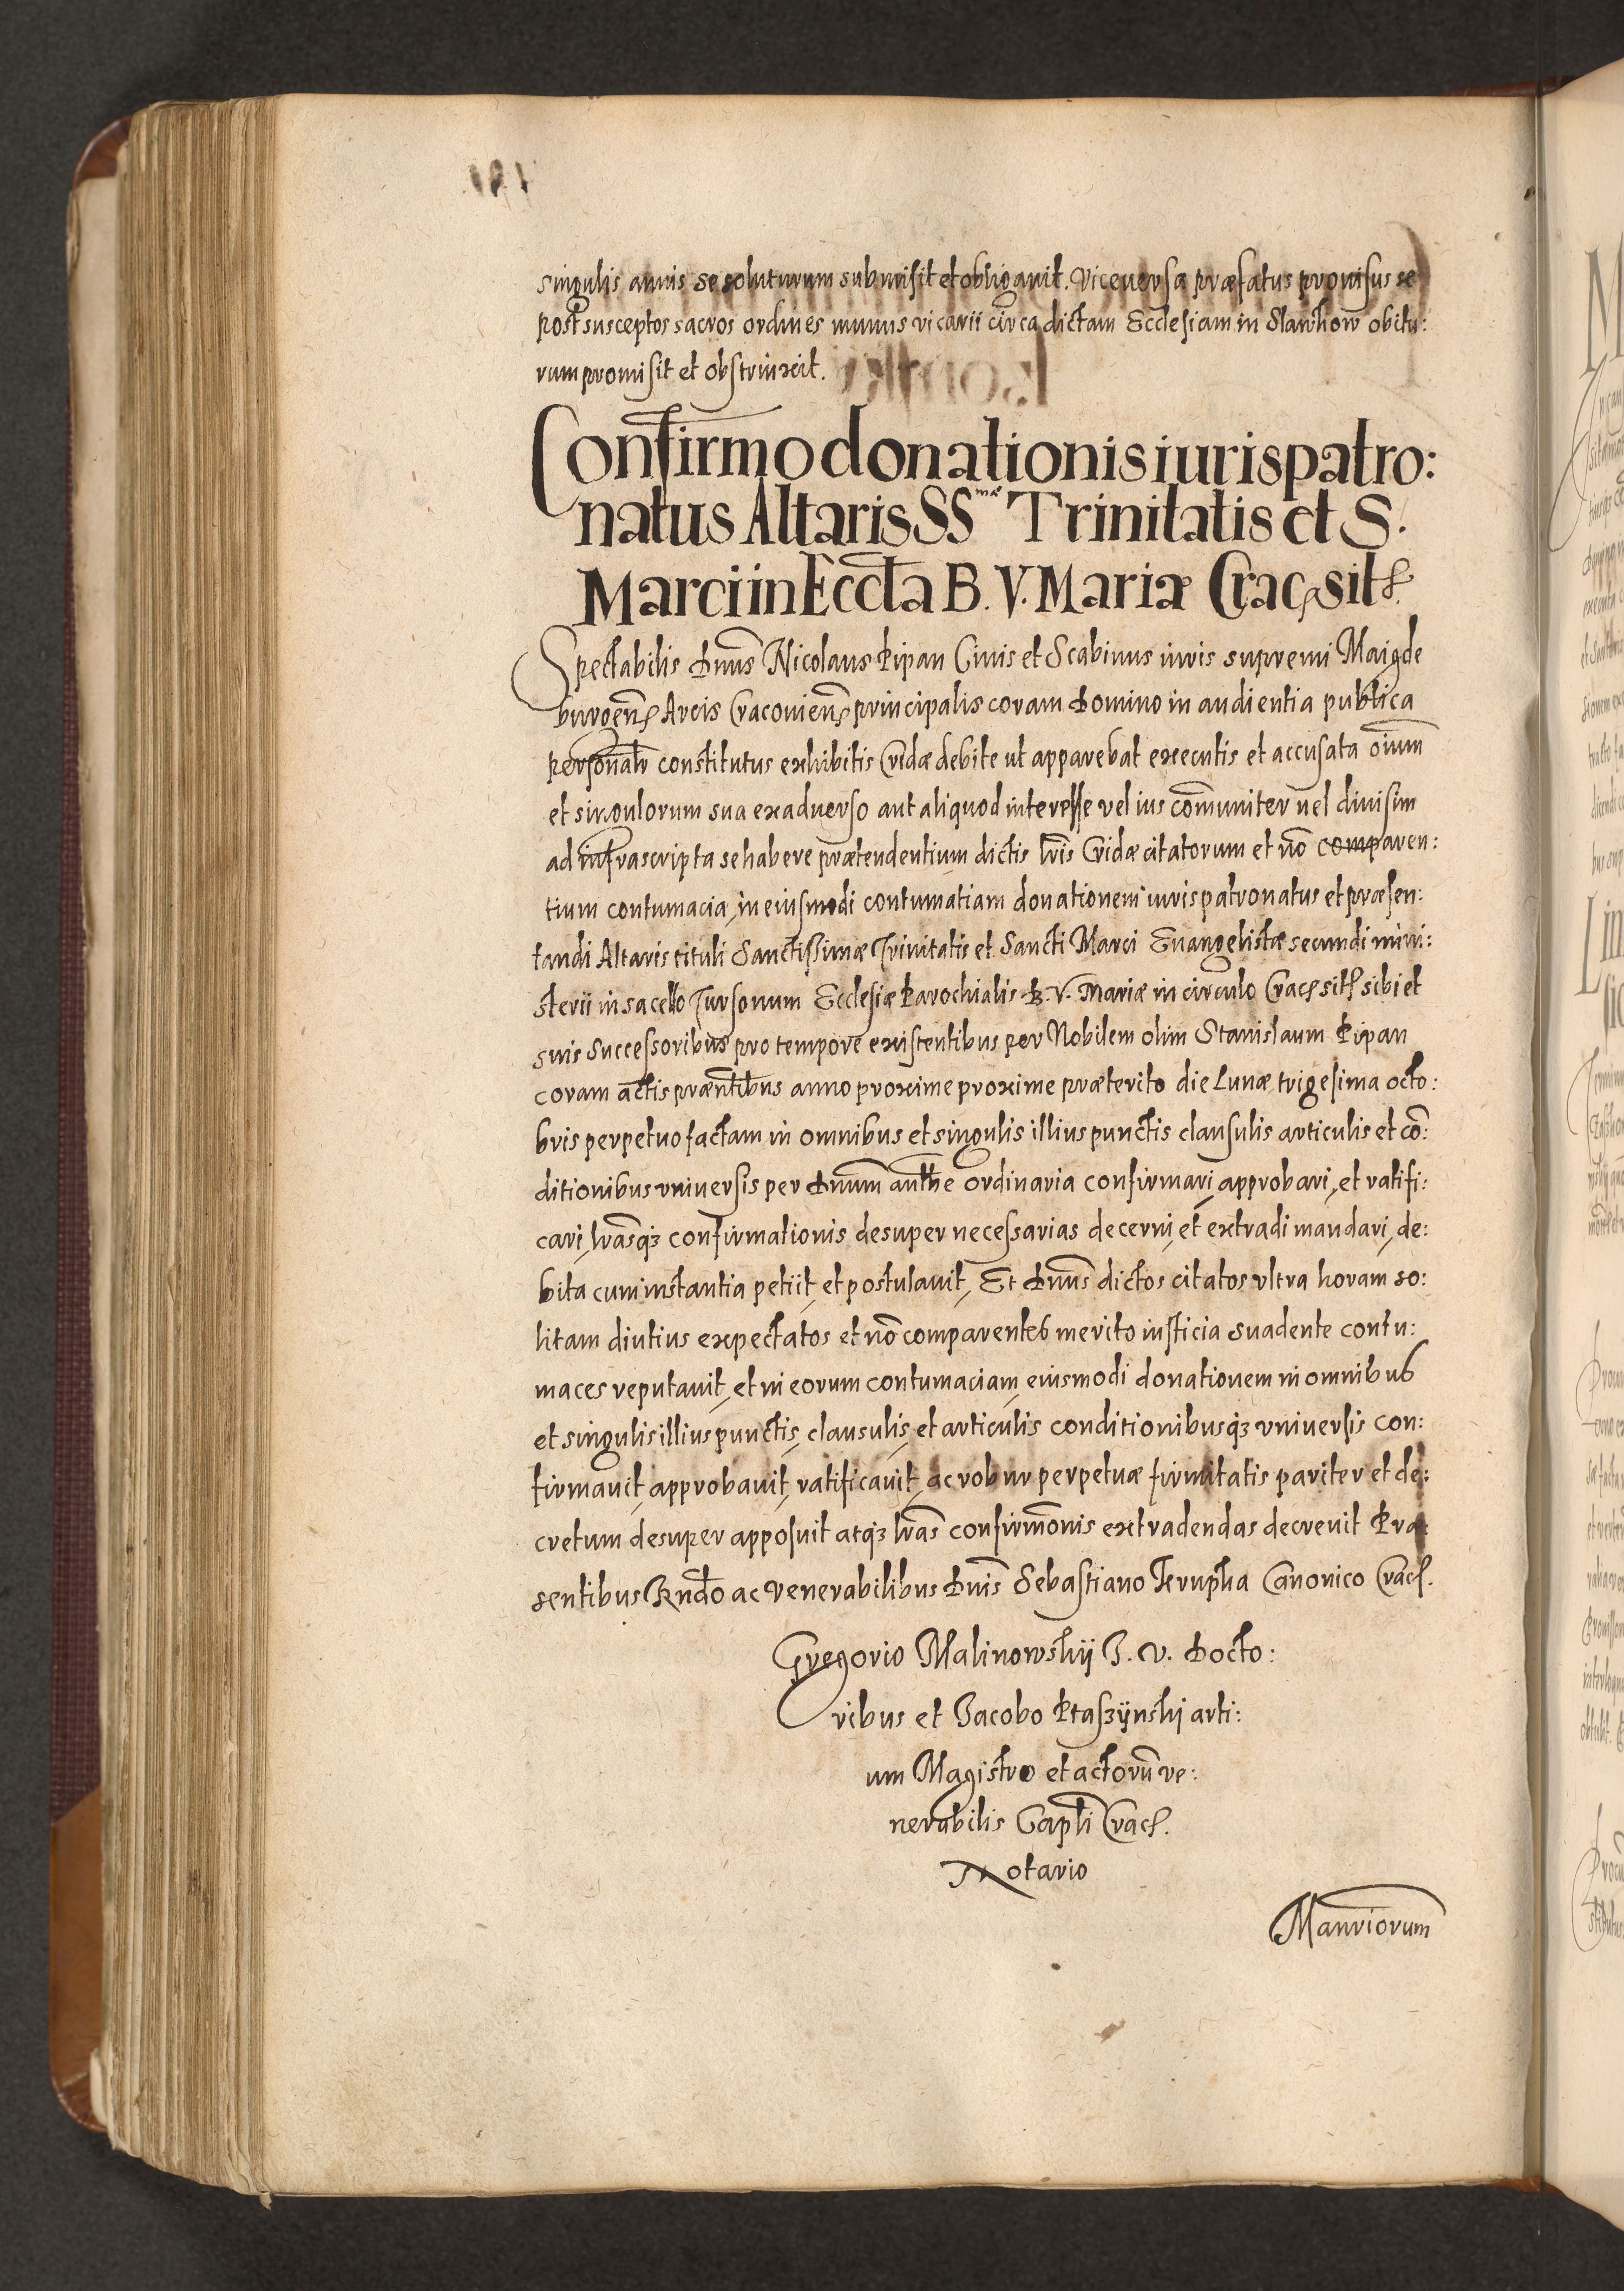 singulis annis se soluturum submisit et obligauit. Viceuersa præfatus prouisus se
post susceptos sacros ordines munus vicarii circa dictam Ecclesiam in Slawkow obitu:
rum promisit et obstrinxit.
Confirmō donationis iuris patro:
natus Altaris SSmæ Trinitatis et S.
Marci in Eccła B. V. Mariæ Crac sit
Spectabilis Dnus Nicolaus Pipan Ciuis et Scabinus iuris supremi Maigde
burgen Arcis Cracouien principalis coram Domino in audientia publica
personalr constitutus exhibitis Cridæ debite ut apparebat executis et accusata oium
et singulorum sua exaduerso aut aliquod interesse vel ius cōmuniter uel diuisim
ad infrascripta se habere prætendentium dictis lris Cridæ citatorum et nō comparen:
tium contumacia, in eiusmodi contumatiam donationem iuris patronatus et præsen:
tandi Altaris tituli Sanctissimæ Trinitatis et Sancti Marci Euangelistæ secundi mini:
sterii in sacello Tursonum Ecclesiæ Parochialis B. V. Mariæ in circulo Crac sit sibi et
suis successoribus pro tempore existentibus per Nobilem olim Stanislaum Pipan
coram actis præntibus anno proxime proxime præterito die Lunæ trigesima octo:
bris perpetuo factam in omnibus et singulis illius punctis clausulis articulis et cō:
ditionibus vniuersis per Dnum authe ordinaria confirmari, approbari, et ratifi:
cari, lrasq3 confirmationis desuper necessarias decerni, et extradi mandari, de:
bita cum instantia petiit, et postulauit, Et Dnus dictos citatos vltra horam so:
litam diutius expectatos et nō comparentes merito iusticia suadente contu:
maces reputauit, et in eorum contumaciam, eiusmodi donationem in omnibus
et singulis illius punctis, clausulis, et articulis conditionibusq3 vniuersis con:
firmauit, approbauit, ratificauit, ac robur perpetuæ firmitatis pariter et de:
cretum desuper apposuit atq3 lras confirmōnis extradendas decreuit Præ:
sentibus Rndo ac Venerabilibus Dnis Sebastiano Krupka Canonico Crac.
Gregorio Malinowskij J. V. Docto:
ribus et Jacobo Ptaszÿnski arti:
um Magistro et actorū ve:
nerabilis Capli Crac.
Notario
Manriorum